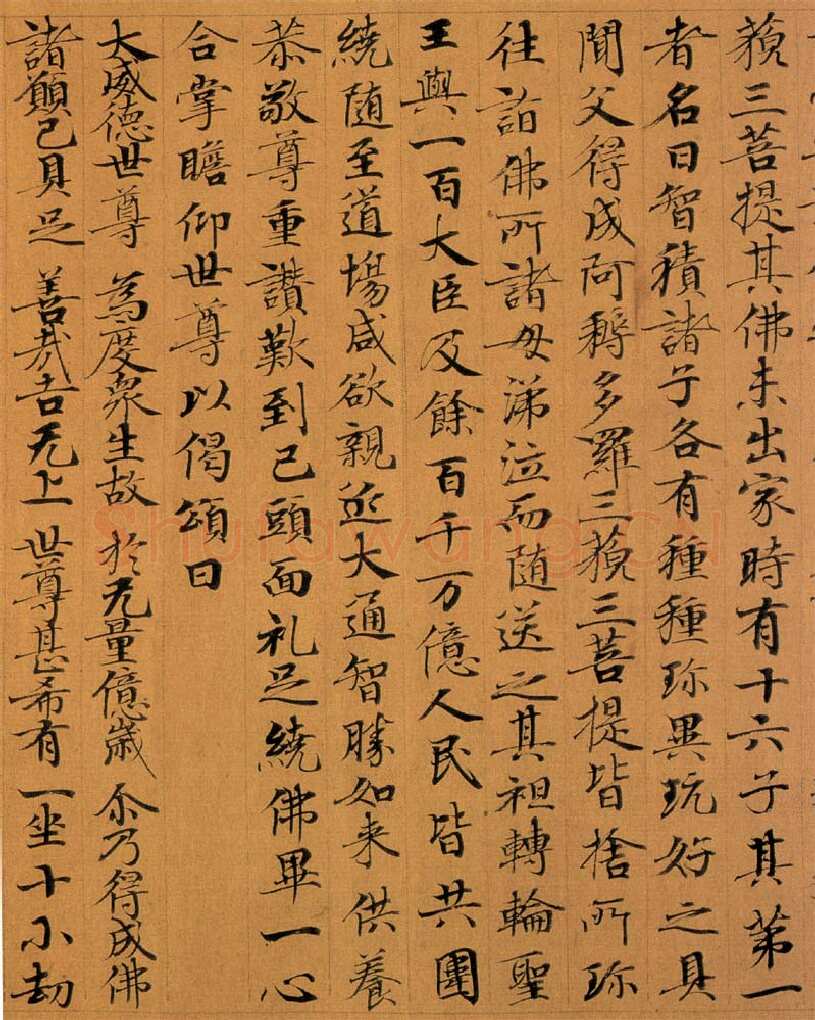 藐三菩提其佛未出家時有十六子其第一
者名曰智積諸子各有種種珎異玩好之具
聞父得成阿耨多羅三藐三菩提皆捨所珎
往詣佛所諸母涕泣而随送之其祖轉輪聖
王與一百大臣及餘百千万億人民皆共圍
繞随至道場咸欲親近大通智勝如来供養
恭敬尊重讚歎到已頭面礼足繞佛畢一心
合掌瞻仰世尊以偈頌曰
大威德世尊 為度衆生故 於无量億歲 尒乃得成佛
諸願已具足 善哉吉无上 世尊甚希有 一坐十小劫
Shufawang.cn